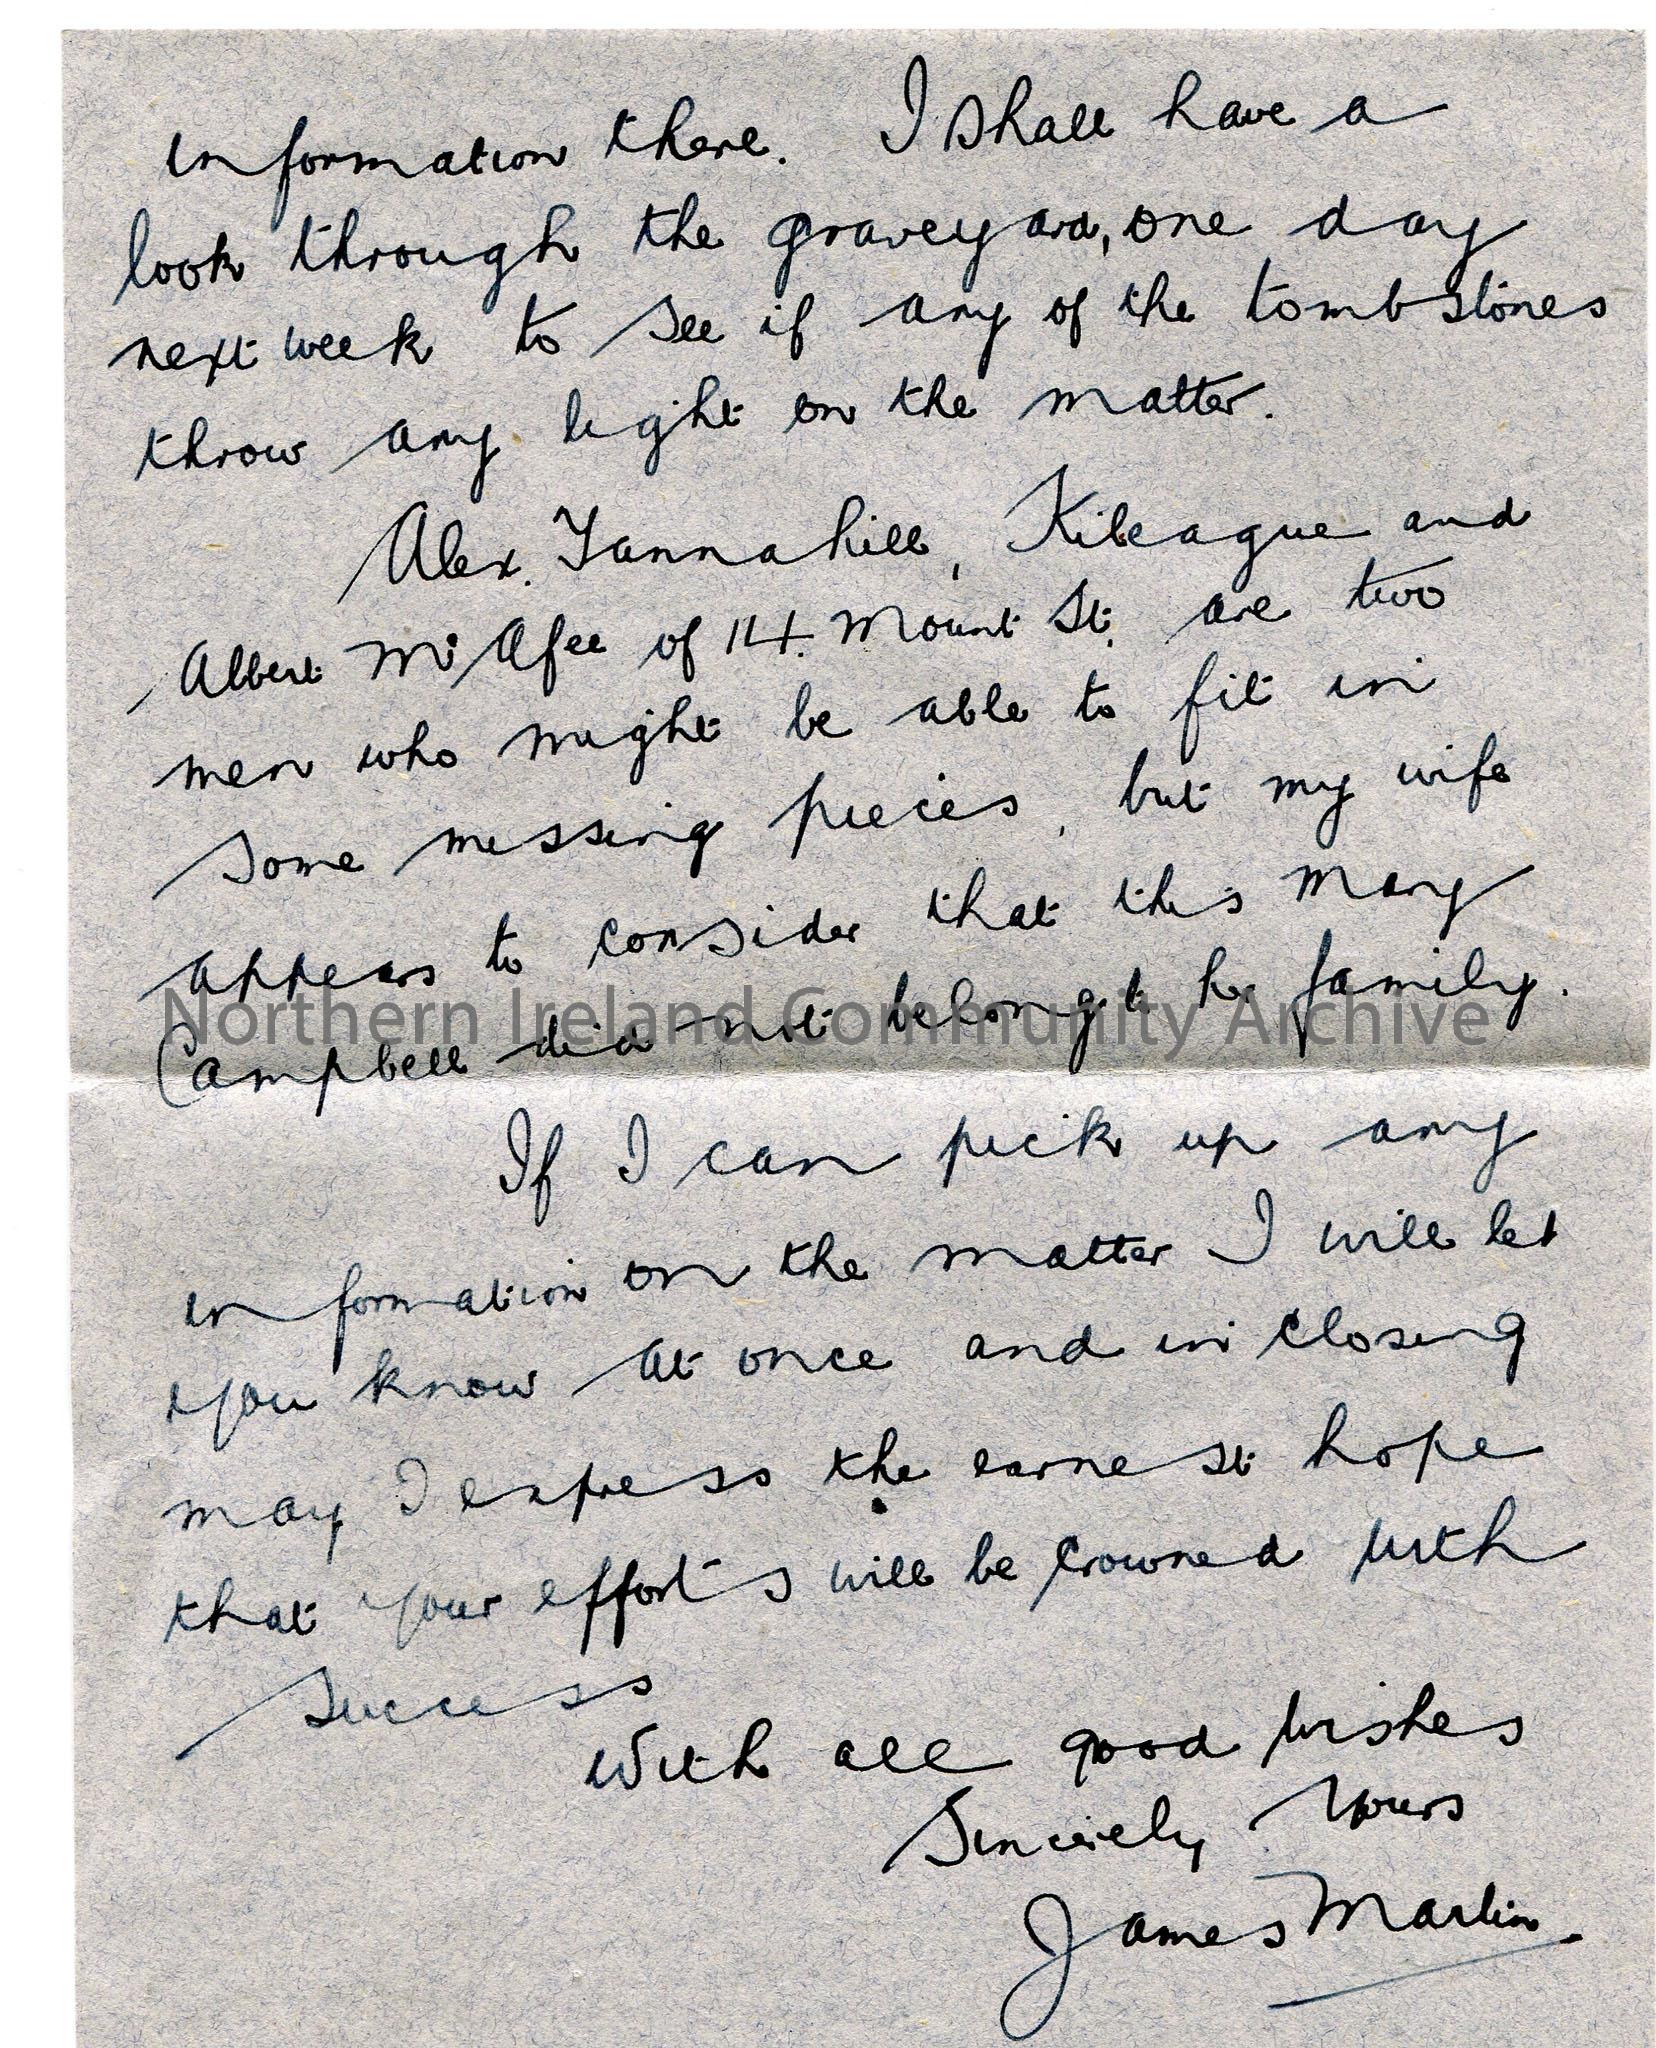 information there. I shall have a
look through the graveyard, one day
next week to see if any of the tombstones
throw any light on the matter.
Alex. Tannahill, Killeague and
Albert McAfee of 14. Mount St. are two
men who might be able to fit in
some missing pieces, but my wife
appears to consider that this Mary
Campbell did not belong to her family.
Northern Ireland Community Archive
If I can pick up any
information on the matter I will let
you know at once and in closing
may I express the earnest hope
that your efforts will be crowned with
success
With all good wishes
Sincerely Yours
James Martin.